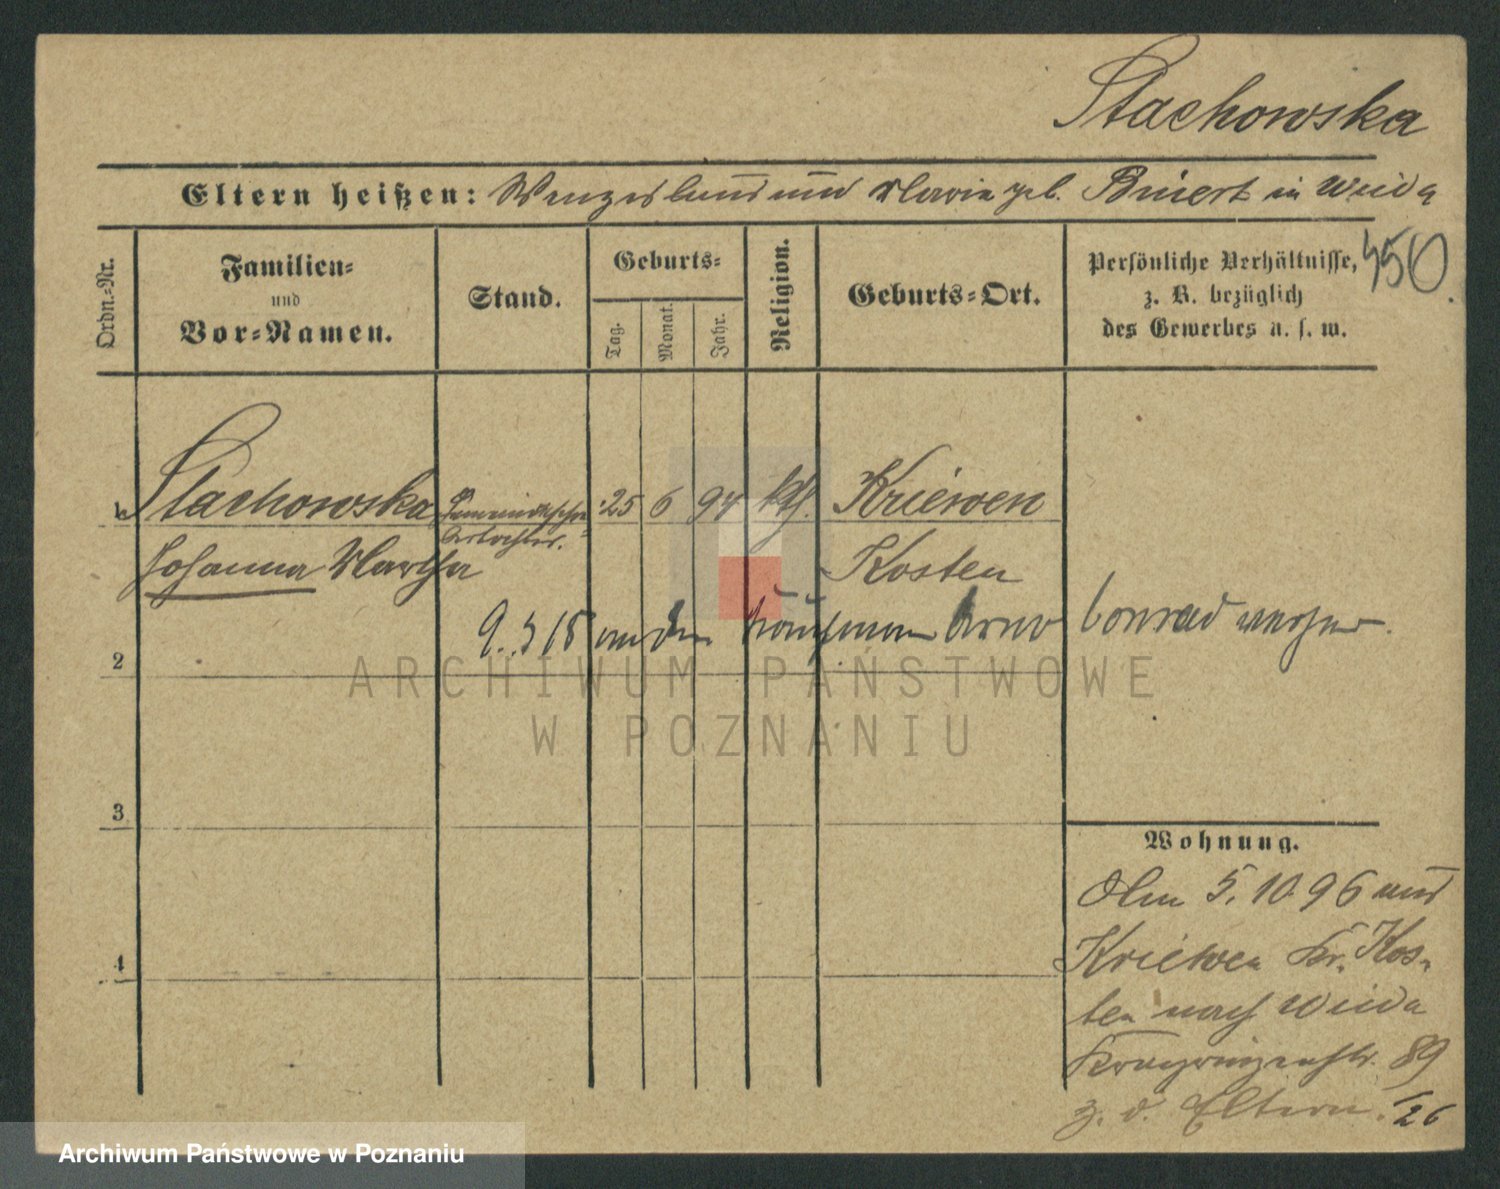 Stachowska
Eltern heißen: Wenzeslaus und Maria geb. in Wilda
450.
Ordn.-Nr.
Familien-
und
Vor-Namen.
Stand.
Geburts-
Tag.
Monat.
Jahr.
Religion.
Geburts-Ort.
Persönliche Verhältnisse,
z. B. bezüglich
des Gewerbes u. s. w.
1 Stachowska 25 6 94 kth. Kriewen
Johanna Martha Kosten
9. 5 18 an den Kaufmann Arno Conrad
2
ARCHIWUM PAŃSTWOWE
W POZNANIU
3
4
Wohnung.
Am 5. 10 96 aus
Kriewen Kr. Kos-
ten nach Wilda
Kronprinzenstr. 89
z. d. Eltern. /26
Archiwum Państwowe w Poznaniu